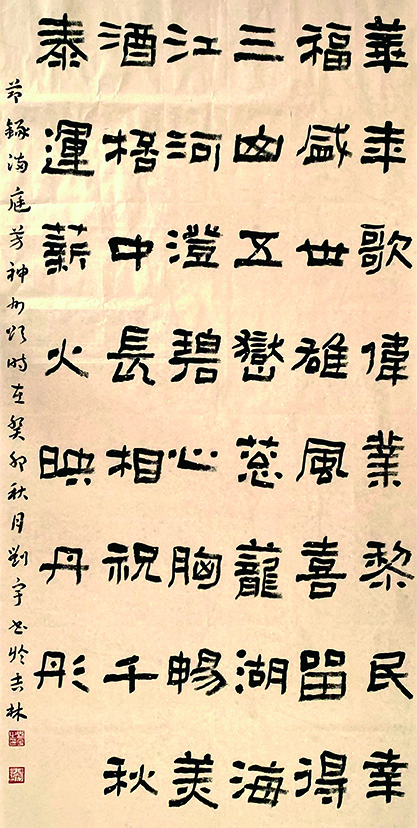 華年歌偉業黎民幸
福盛世雄風喜留得
三山五嶽葱蘢湖海
江河澄碧心胸暢美
酒桮中長相祝千秋
泰運薪火映丹彤
節錄滿庭芳神州頌時在癸卯秋月劉宇書於吉林